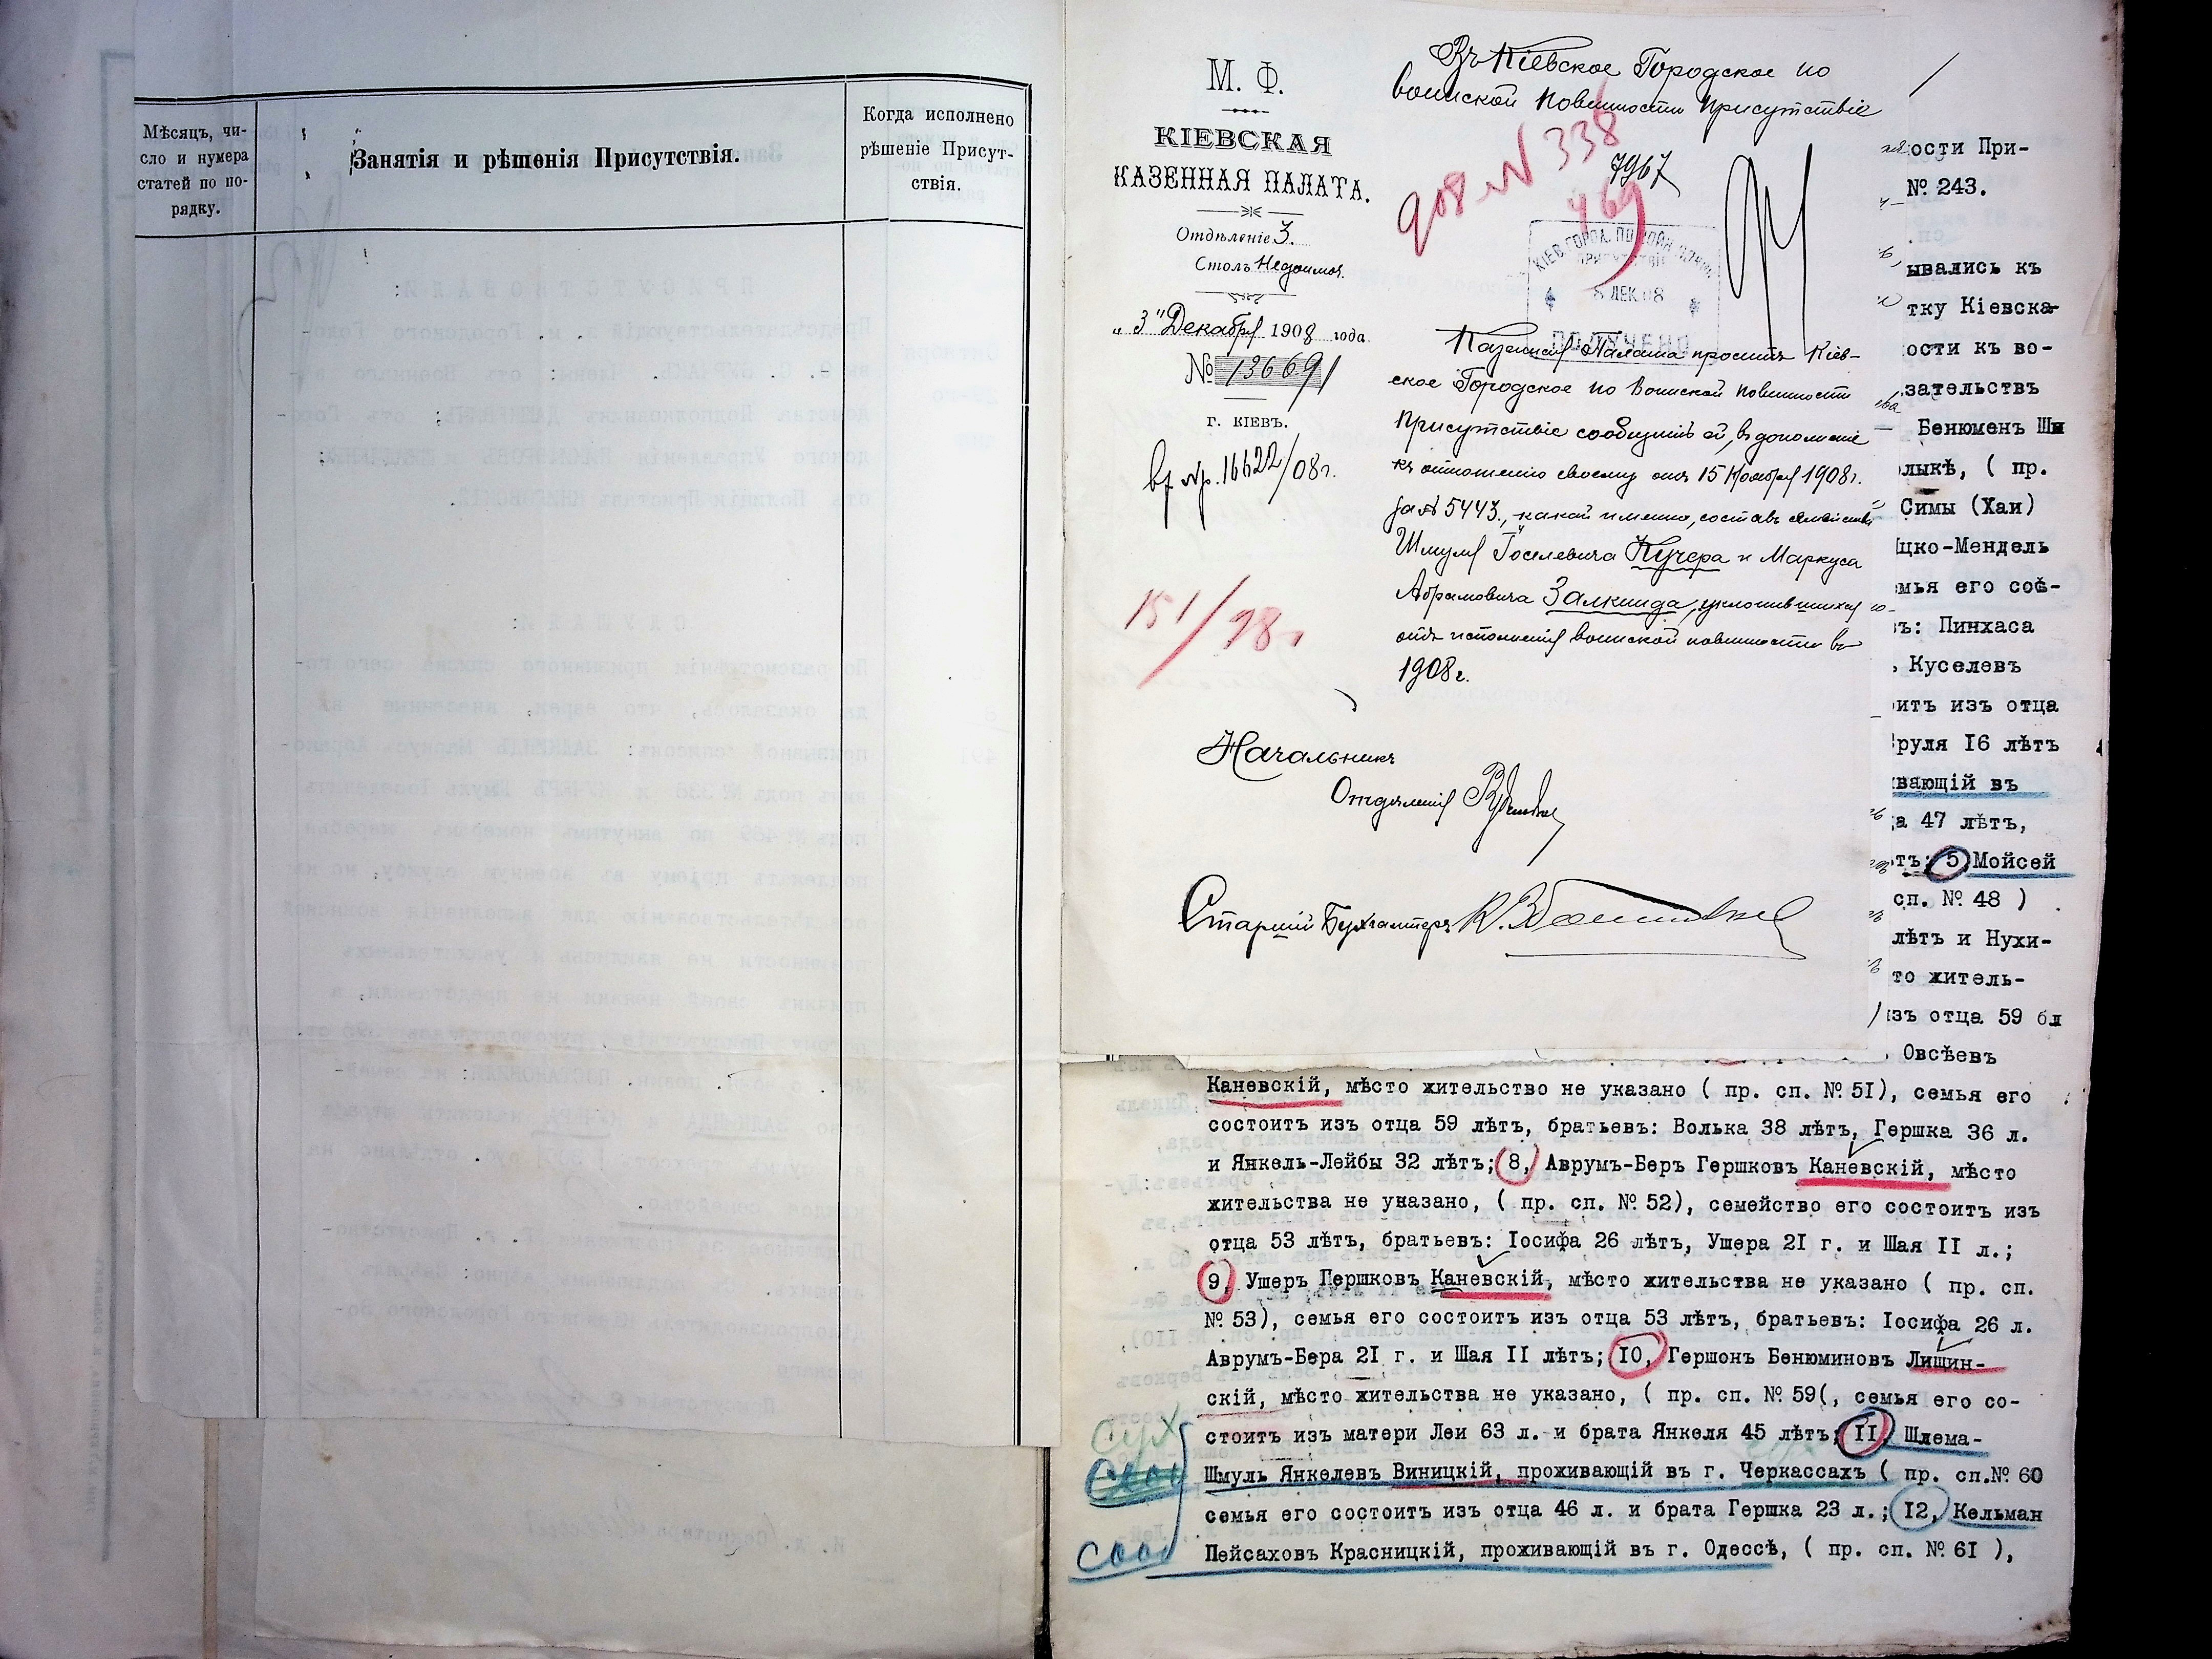 Мѣсяцъ, чи-
сло и нумера
статей по по-
рядку.
Занятія и рѣшенія Присутствія.
Когда исполнено
рѣшеніе Присут-
ствія.
М. Ф.
КІЕВСКАЯ
КАЗЕННАЯ ПАЛАТА.
Отдѣленіе 3.
Столъ Недоимоч.
„3" Декабря 1908 года
№ 136691
г. КІЕВЪ.
вх. № 16622/08 г.
151/98 г
Въ Кіевское Городское по
воинской повинности Присутствіе
908 № 338
7967
469
КІЕВ. ГОРОД. ПО ВОИН. ПОВИН.
ПРИСУТСТВІЕ
8 ДЕК. 08
ПОЛУЧЕНО
Казенная Палата проситъ Кіев-
ское Городское по Воинской повинности
Присутствіе сообщить ей, въ дополненіе
къ отношенію своему отъ 15 Ноября 1908 г.
за № 5443, какой именно, составъ семействъ
Шмуля Іоселевича Кучера и Маркуса
Абрамовича Залкинда, уклонившихся
отъ исполненія воинской повинности въ
1908 г.
Начальникъ
Отдѣленія
Старшій Бухгалтеръ
ости При-
№ 243.
ывались къ
тку Кіевска-
ости къ во-
зательствъ
Бенюменъ Ши
лыкѣ, ( пр.
Симы (Хаи)
цко-Мендель
мья его соѣ-
ъ: Пинхаса
, Куселевъ
итъ изъ отца
руля 16 лѣтъ
вающій въ
а 47 лѣтъ,
тъ; 5 Мойсей
сп. № 48 )
лѣтъ и Нухи-
то житель-
изъ отца 59 бл
Овсѣевъ
Каневскій, мѣсто жительство не указано ( пр. сп. № 51), семья его
состоитъ изъ отца 59 лѣтъ, братьевъ: Волька 38 лѣтъ, Гершка 36 л.
и Янкель-Лейбы 32 лѣтъ; 8, Аврумъ-Беръ Гершковъ Каневскій, мѣсто
жительства не указано, ( пр. сп. № 52), семейство его состоитъ изъ
отца 53 лѣтъ, братьевъ: Іосифа 26 лѣтъ, Ушера 21 г. и Шая II л.;
9, Ушеръ Гершковъ Каневскій, мѣсто жительства не указано ( пр. сп.
№ 53), семья его состоитъ изъ отца 53 лѣтъ, братьевъ: Іосифа 26 л.
Аврумъ-Бера 21 г. и Шая II лѣтъ; 10, Гершонъ Бенюминовъ Лищин-
скій, мѣсто жительства не указано, ( пр. сп. № 59(, семья его со-
стоитъ изъ матери Леи 63 л. и брата Янкеля 45 лѣтъ; II, Шлема-
Шмуль Янкелевъ Виницкій, проживающій въ г. Черкассахъ ( пр. сп.№ 60
семья его состоитъ изъ отца 46 л. и брата Гершка 23 л.; 12, Кельман
Пейсаховъ Красницкій, проживающій въ г. Одессѣ, ( пр. сп. № 61 ),